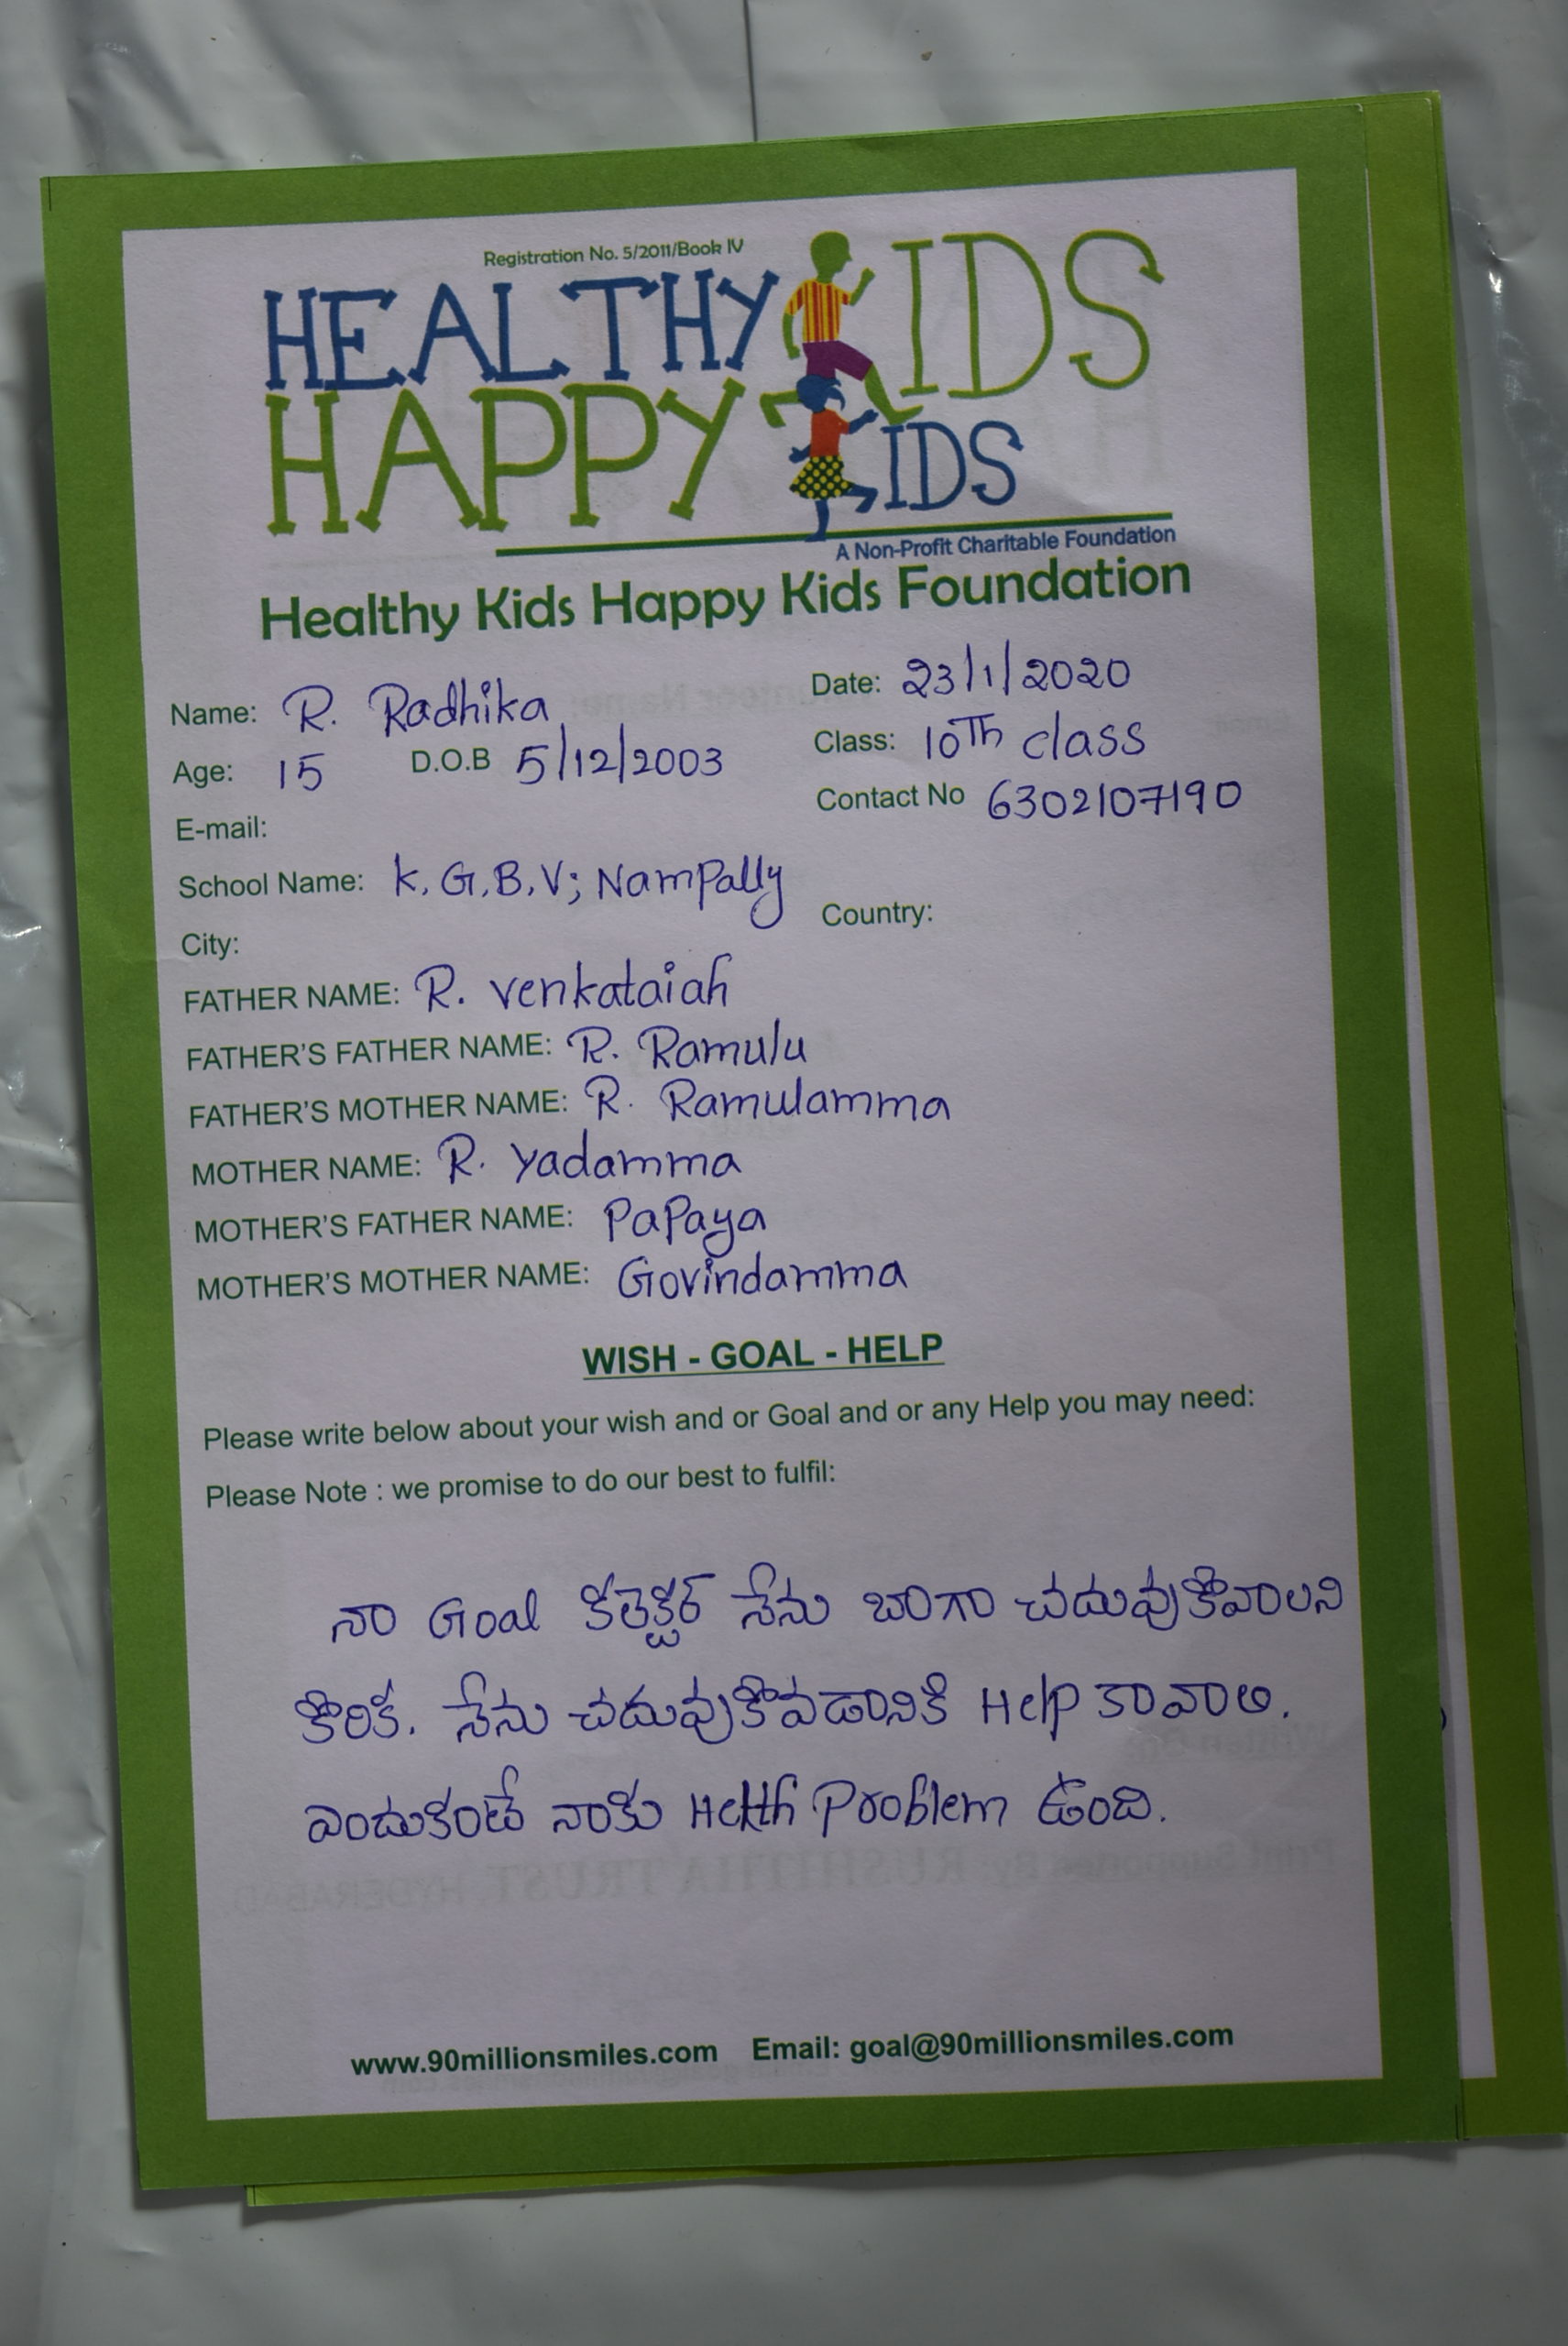 Registration No. 5/2011/Book IV
HEALTHY KIDS
HAPPY KIDS
A Non-Profit Charitable Foundation
Healthy Kids Happy Kids Foundation
Name: R. Radhika Date: 23/1/2020
Age: 15 D.O.B 5/12/2003 Class: 10Th class
E-mail: Contact No 6302107190
School Name: K.G.B.V; Nampally
City: Country:
FATHER NAME: R. venkataiah
FATHER'S FATHER NAME: R. Ramulu
FATHER'S MOTHER NAME: R. Ramulamma
MOTHER NAME: R. yadamma
MOTHER'S FATHER NAME: PaPaya
MOTHER'S MOTHER NAME: Govindamma
WISH - GOAL - HELP
Please write below about your wish and or Goal and or any Help you may need:
Please Note : we promise to do our best to fulfil:
నా Goal కలెక్టర్ నేను బాగా చదువుకోవాలని
కోరిక. నేను చదువుకోవడానికి Help కావాలి.
ఎందుకంటే నాకు Helth Problem ఉంది.
www.90millionsmiles.com Email: goal@90millionsmiles.com